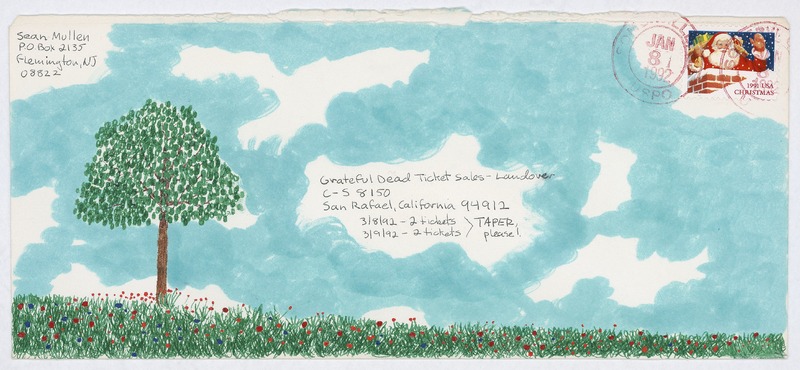 Sean Mullen
P.O Box 2135
Flemington, NJ
08822
JAN
8
1992
1991 USA
CHRISTMAS
Grateful Dead Ticket Sales - Landover
C-S 8150
San Rafael, California 94912
3/8/92 - 2 tickets
3/9/92 - 2 tickets
TAPER,
please!